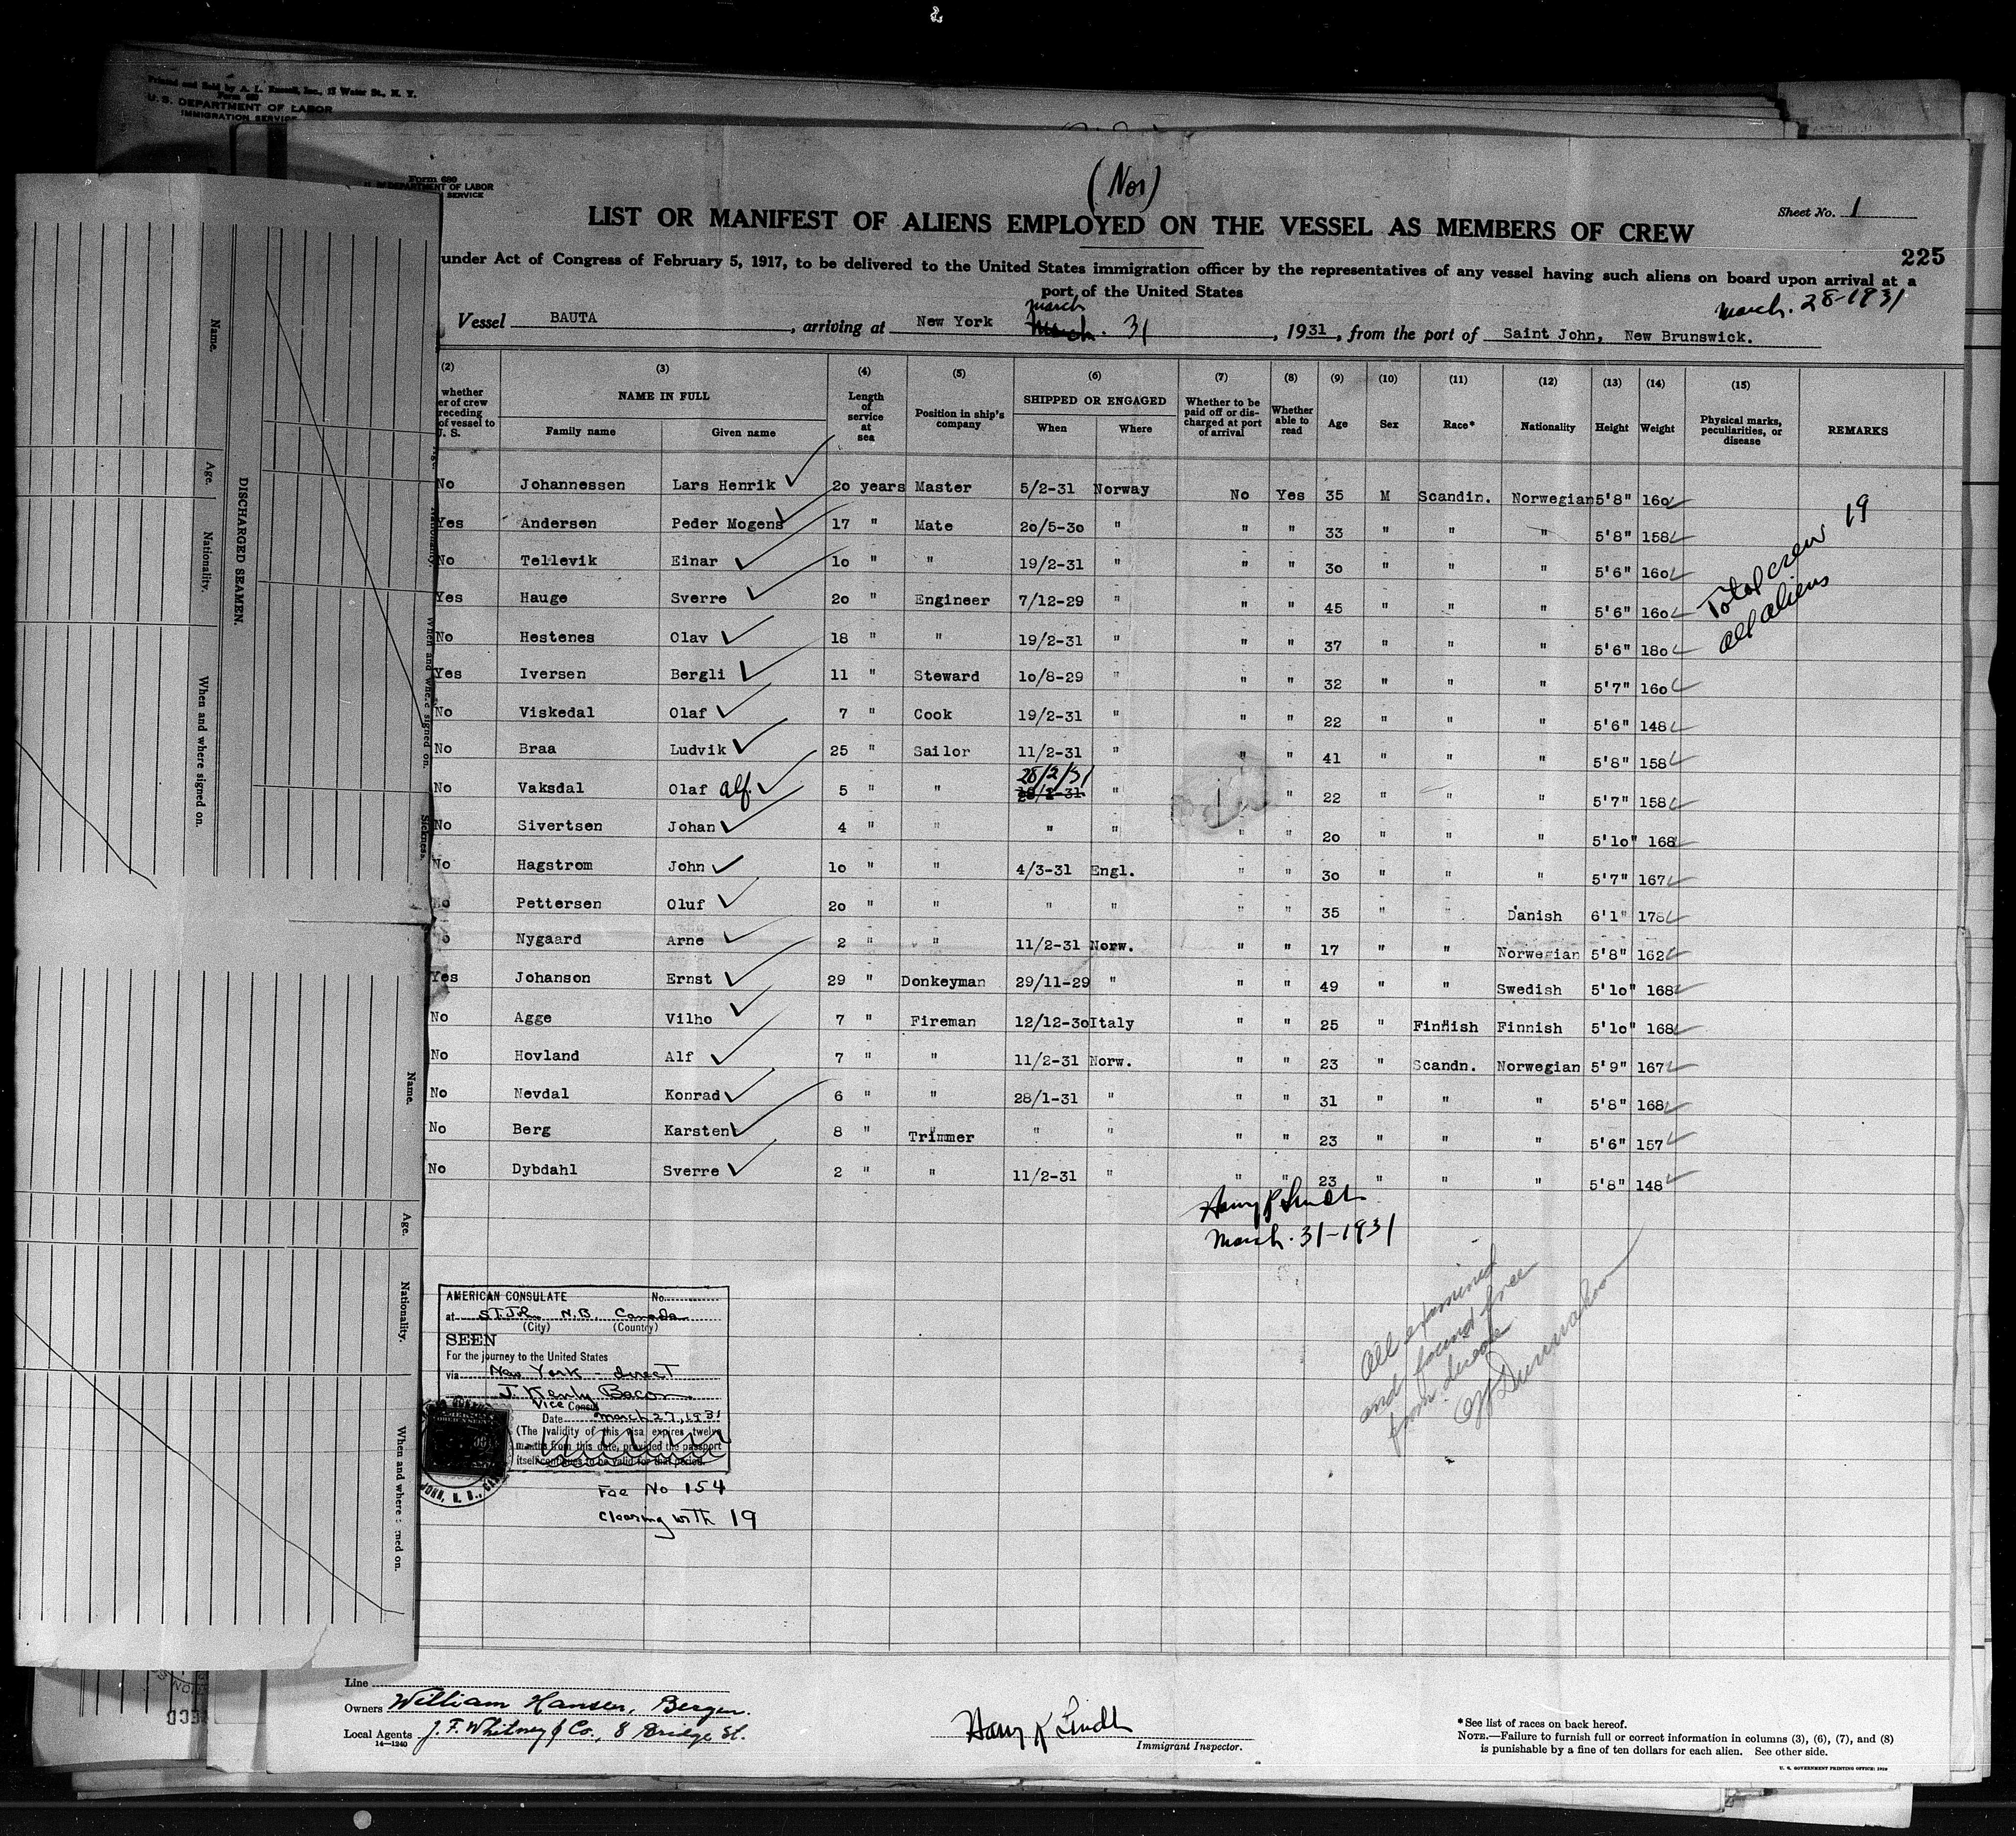 Printed and Sold by A. L. Russell, Inc., 12 Water St., N. Y.
Form 680
U. S. DEPARTMENT OF LABOR
IMMIGRATION SERVICE
Form 680
DEPARTMENT OF LABOR
SERVICE
(Nor)
LIST OR MANIFEST OF ALIENS EMPLOYED ON THE VESSEL AS MEMBERS OF CREW
Sheet No. 1
225
under Act of Congress of February 5, 1917, to be delivered to the United States immigration officer by the representatives of any vessel having such aliens on board upon arrival at a
port of the United States
March. 28-1931
Vessel BAUTA, arriving at New York March March. 31, 1931, from the port of Saint John, New Brunswick.
(2) (3) (4) (5) (6) (7) (8) (9) (10) (11) (12) (13) (14) (15)
whether
er of crew
receding
of vessel to
U. S.
NAME IN FULL
Family name Given name
Length of service at sea
Position in ship's company
SHIPPED OR ENGAGED
When Where
Whether to be paid off or discharged at port of arrival
Whether able to read
Age Sex Race* Nationality Height Weight
Physical marks, peculiarities, or disease
REMARKS
No Johannessen Lars Henrik 20 years Master 5/2-31 Norway No Yes 35 M Scandin. Norwegian 5'8" 160
Yes Andersen Peder Mogens 17 " Mate 20/5-30 " " " 33 " " " 5'8" 158
No Tellevik Einar 10 " " 19/2-31 " " " 30 " " " 5'6" 160
Yes Hauge Sverre 20 " Engineer 7/12-29 " " " 45 " " " 5'6" 160
No Hestenes Olav 18 " " 19/2-31 " " " 37 " " " 5'6" 180
Yes Iversen Bergli 11 " Steward 10/8-29 " " " 32 " " " 5'7" 160
No Viskedal Olaf 7 " Cook 19/2-31 " " " 22 " " " 5'6" 148
No Braa Ludvik 25 " Sailor 11/2-31 " " " 41 " " " 5'8" 158
No Vaksdal Olaf Alf. 5 " " 28/2/31 " " 22 " " " 5'7" 158
No Sivertsen Johan 4 " " " " " " 20 " " " 5'10" 168
No Hagstrom John 10 " " 4/3-31 Engl. " " 30 " " " 5'7" 167
No Pettersen Oluf 20 " " " " " " 35 " " Danish 6'1" 178
No Nygaard Arne 2 " " 11/2-31 Norw. " " 17 " " Norwegian 5'8" 162
Yes Johanson Ernst 29 " Donkeyman 29/11-29 " " " 49 " " Swedish 5'10" 168
No Agge Vilho 7 " Fireman 12/12-30 Italy " " 25 " Finnish Finnish 5'10" 168
No Hovland Alf 7 " " 11/2-31 Norw. " " 23 " Scandn. Norwegian 5'9" 167
No Nevdal Konrad 6 " " 28/1-31 " " " 31 " " " 5'8" 168
No Berg Karsten 8 " Trimmer " " " " 23 " " " 5'6" 157
No Dybdahl Sverre 2 " " 11/2-31 " " " 23 " " " 5'8" 148
Total crew 19
all aliens
Harry R Lindh
March. 31-1931
All examined
and found free
from disease
AMERICAN CONSULATE No.
at St. John N.B. Canada
(City) (Country)
SEEN
For the journey to the United States
via New York - direct
J. Kenly Bacon
Vice Consul
Date March 27, 1931
(The validity of this visa expires twelve
months from this date, provided the passport
itself continues to be valid for that period.
Fee No 154
Clearing with 19
JOHN, N. B.,
Name.
Age.
Nationality.
When and where signed on.
DISCHARGED SEAMEN.
Nationality.
When and where signed on.
Sickness.
Name.
Age.
Nationality.
When and where
ned on.
Line
Owners William Hansen, Bergen.
Local Agents J. F. Whitney & Co., 8 Bridge St.
14-1240
Harry R Lindh
Immigrant Inspector.
*See list of races on back hereof.
NOTE.—Failure to furnish full or correct information in columns (3), (6), (7), and (8)
is punishable by a fine of ten dollars for each alien. See other side.
U. S. GOVERNMENT PRINTING OFFICE: 1929